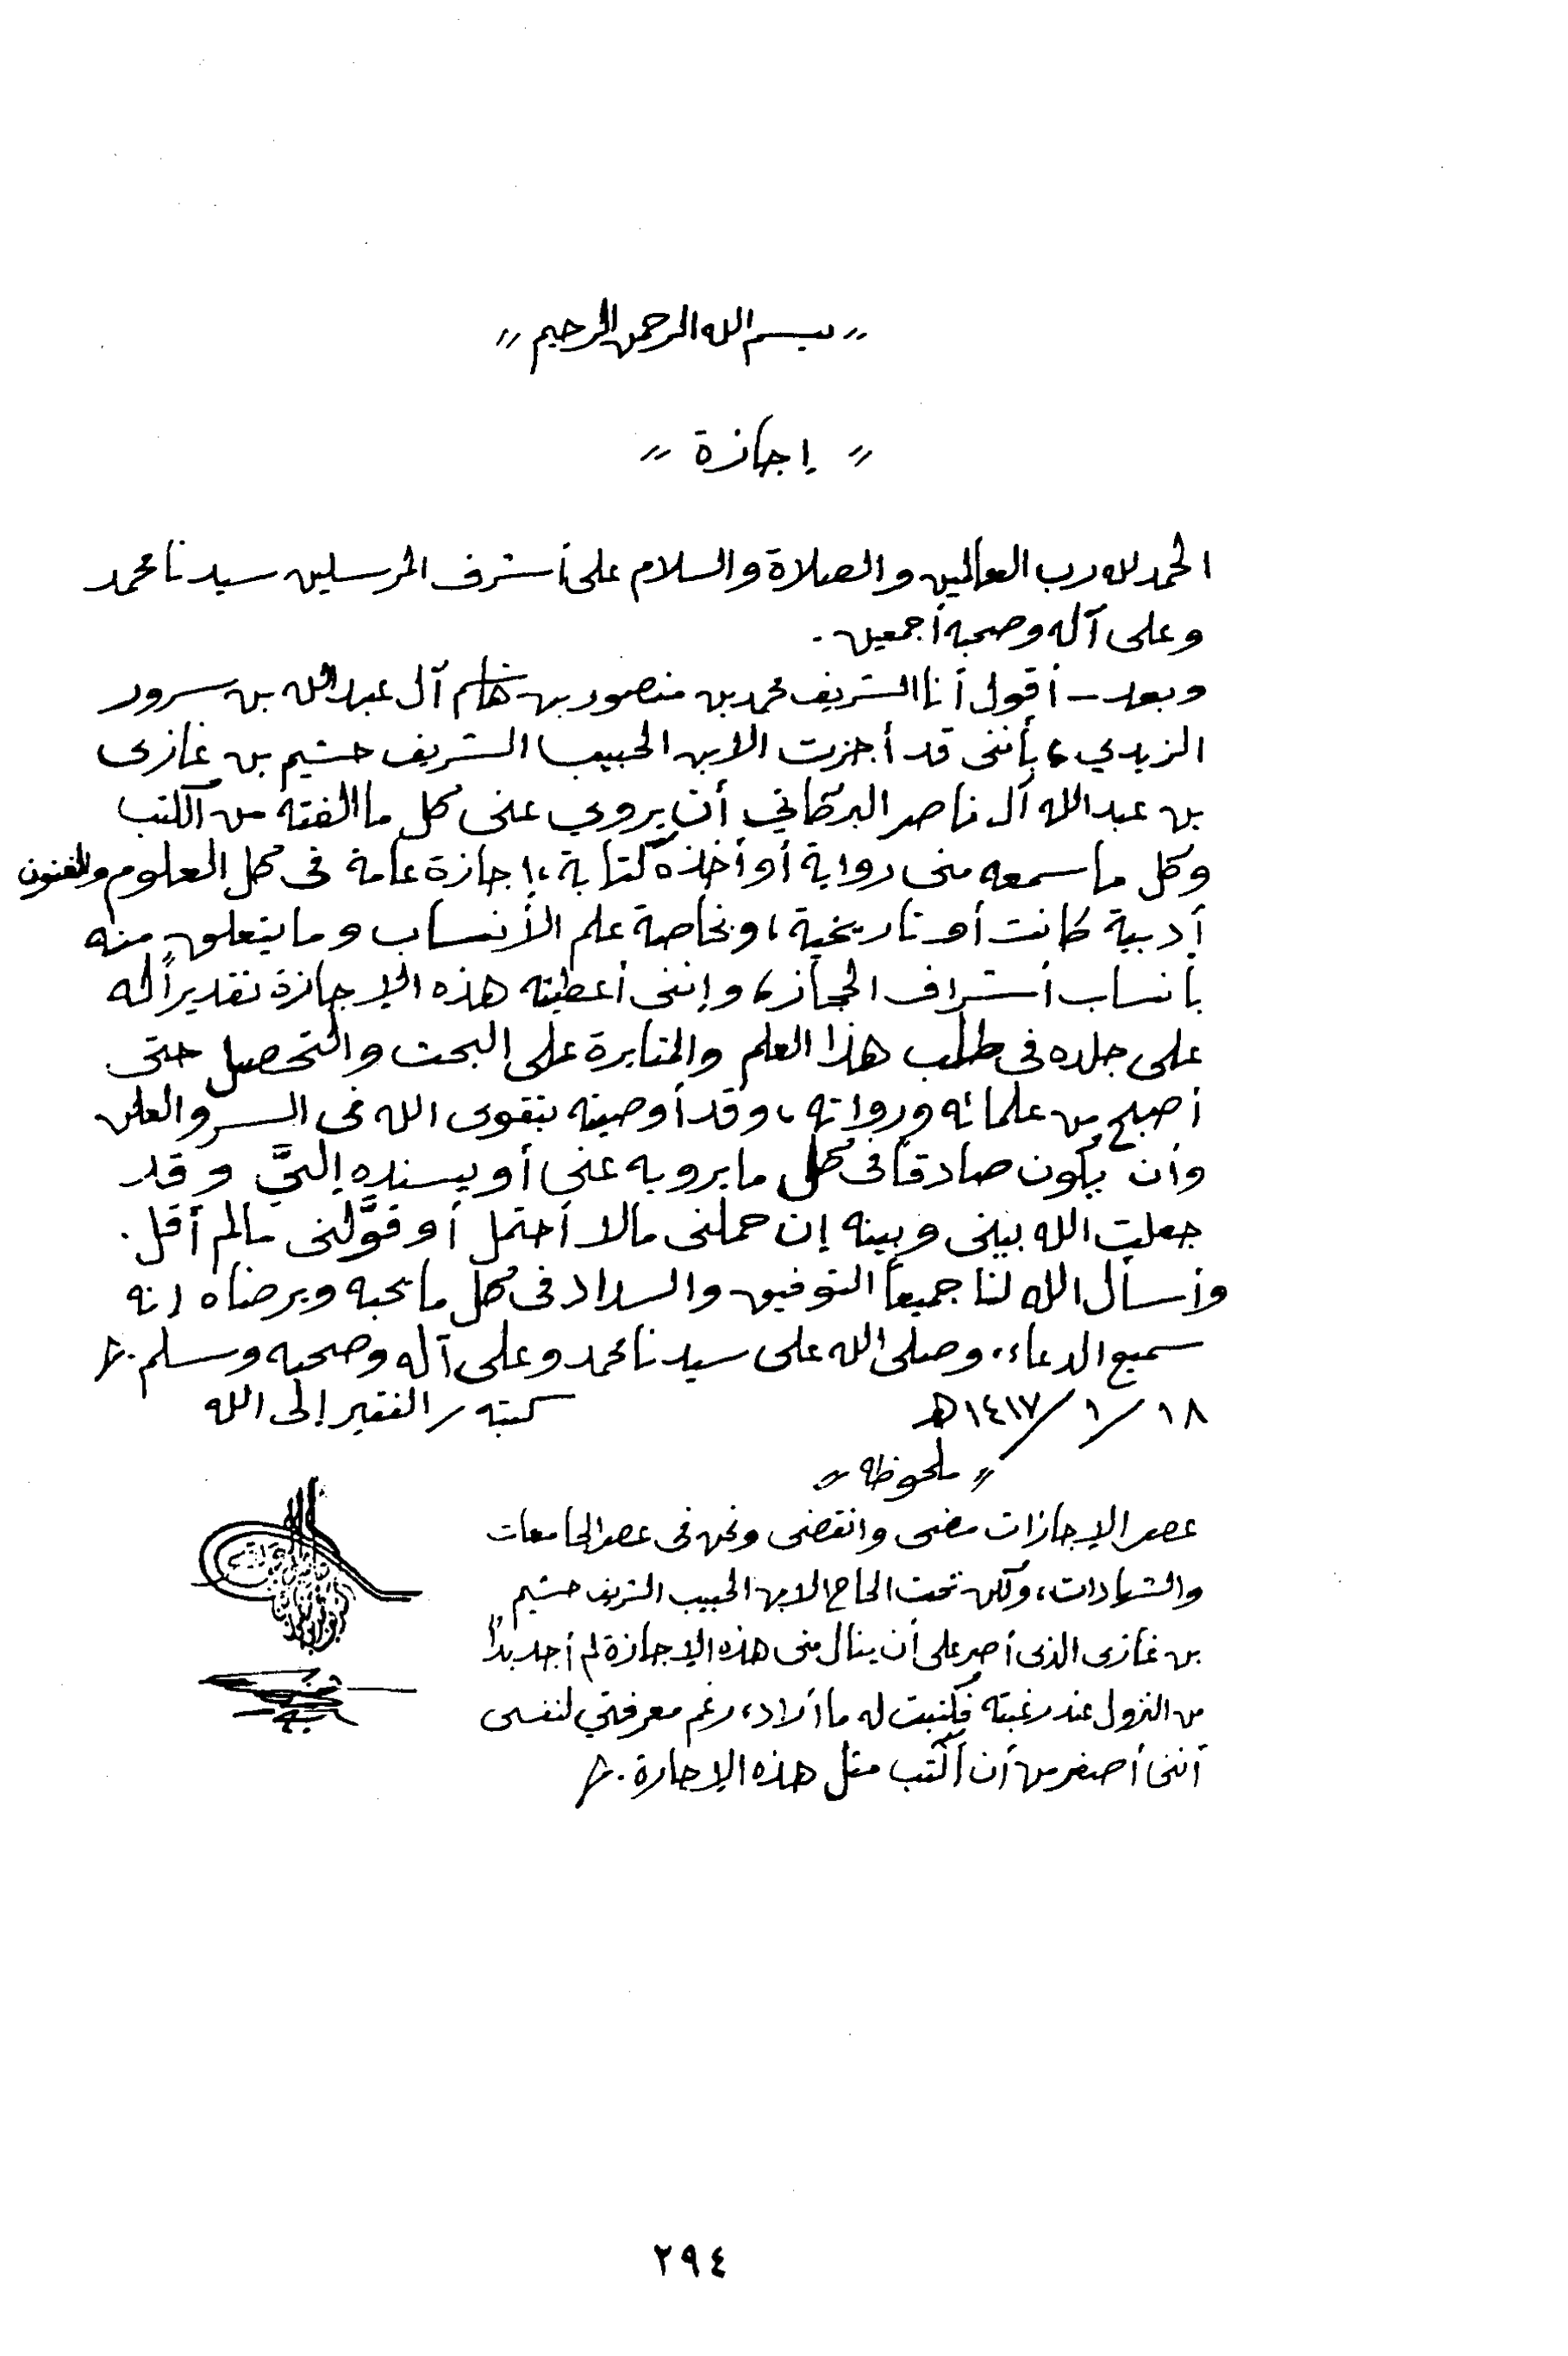 〃 بسم الله الرحمن الرحيم 〃
〃 إجازة 〃
الحمد لله رب العالمين والصلاة والسلام على أشرف المرسلين سيدنا محمد
وعلى آله وصحبه أجمعين .
وبعد - أقول أنا الشريف محمد بن منصور بن هاشم آل عبدالله بن سرور
الزيدي ، بأننى قد أجزت الابن الحبيب الشريف حشيم بن غازى
بن عبدالله آل ناصر البركاتي أن يروي عنى كل ما الفته من الكتب
وكل ما سمعه منى رواية أو أخذه كتابة ، إجازة عامة فى كل العلوم والفنون
أدبية كانت أو تاريخية ، وبخاصة علم الأنساب وما يتعلق منه
بأنساب أشراف الحجاز ، وإننى أعطيته هذه الإجازة تقديراً له
على جلده فى طلب هذا العلم والمثابرة على البحث والتحصيل حتى
أصبح من علمائه ورواته ، وقد أوصيته بتقوى الله فى السر والعلن
وأن يكون صادقاً فى كل ما يرويه عنى أو يسنده إليَّ وقد
جعلت الله بينى وبينه إن حملنى مالا أحتمل أو قوَّلنى مالم أقل .
وأسأل الله لنا جميعاً التوفيق والسداد فى كل ما يحبه ويرضاه إنه
سميع الدعاء . وصلى الله على سيدنا محمد وعلى آله وصحبه وسلم .
١٨ / ١ / ١٤١٧هـ كتبه / الفقير إلى الله
〃 ملحوظة 〃
عصر الإجازات مضى وانقضى ونحن فى عصر الجامعات
والشهادات ، ولكن تحت الحاح الابن الحبيب الشريف حشيم
بن غازى الذى أصر على أن ينال منى هذه الإجازة لم أجد بداً
من النزول عند رغبته فكتبت له ما أراد ، رغم معرفتي لنفسى
أننى أصغر من أن أكتب مثل هذه الإجازة .
٢٩٤